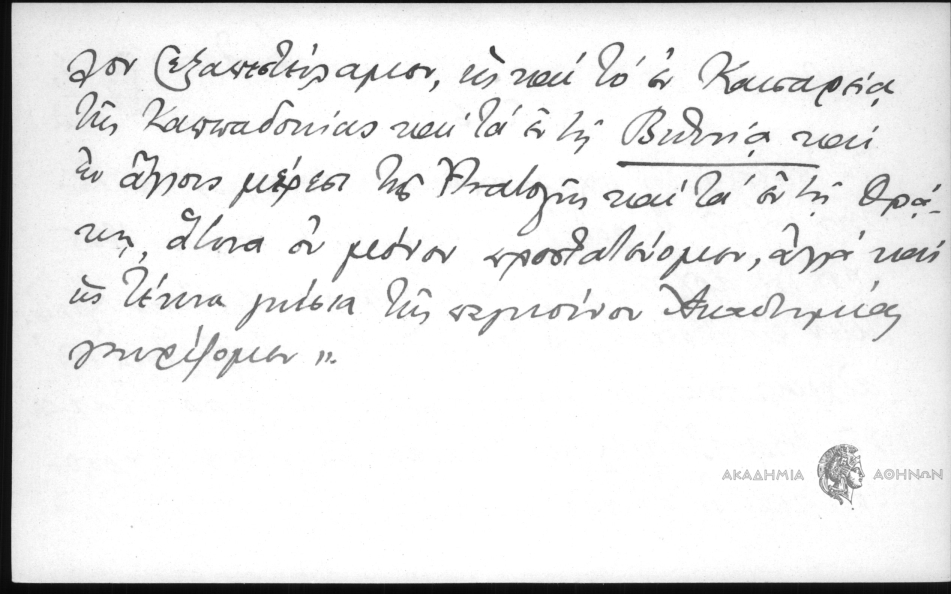 λον ἐξαπεστείλαμεν, ὡς καί τό ἐν Καισαρείᾳ
τῆς Καππαδοκίας καί τά ἐν τῇ Βιθυνίᾳ καί
ἐν ἄλλοις μέρεσι τῆς Ἀνατολῆς καί τά ἐν τῇ Θρά-
κῃ, ἅτινα οὐ μόνον προστατεύομεν, ἀλλά καί
ὡς τέκνα γνήσια τῆς Ἀκαδημίας
γνωρίζομεν».
ΑΚΑΔΗΜΙΑ ΑΘΗΝΩΝ